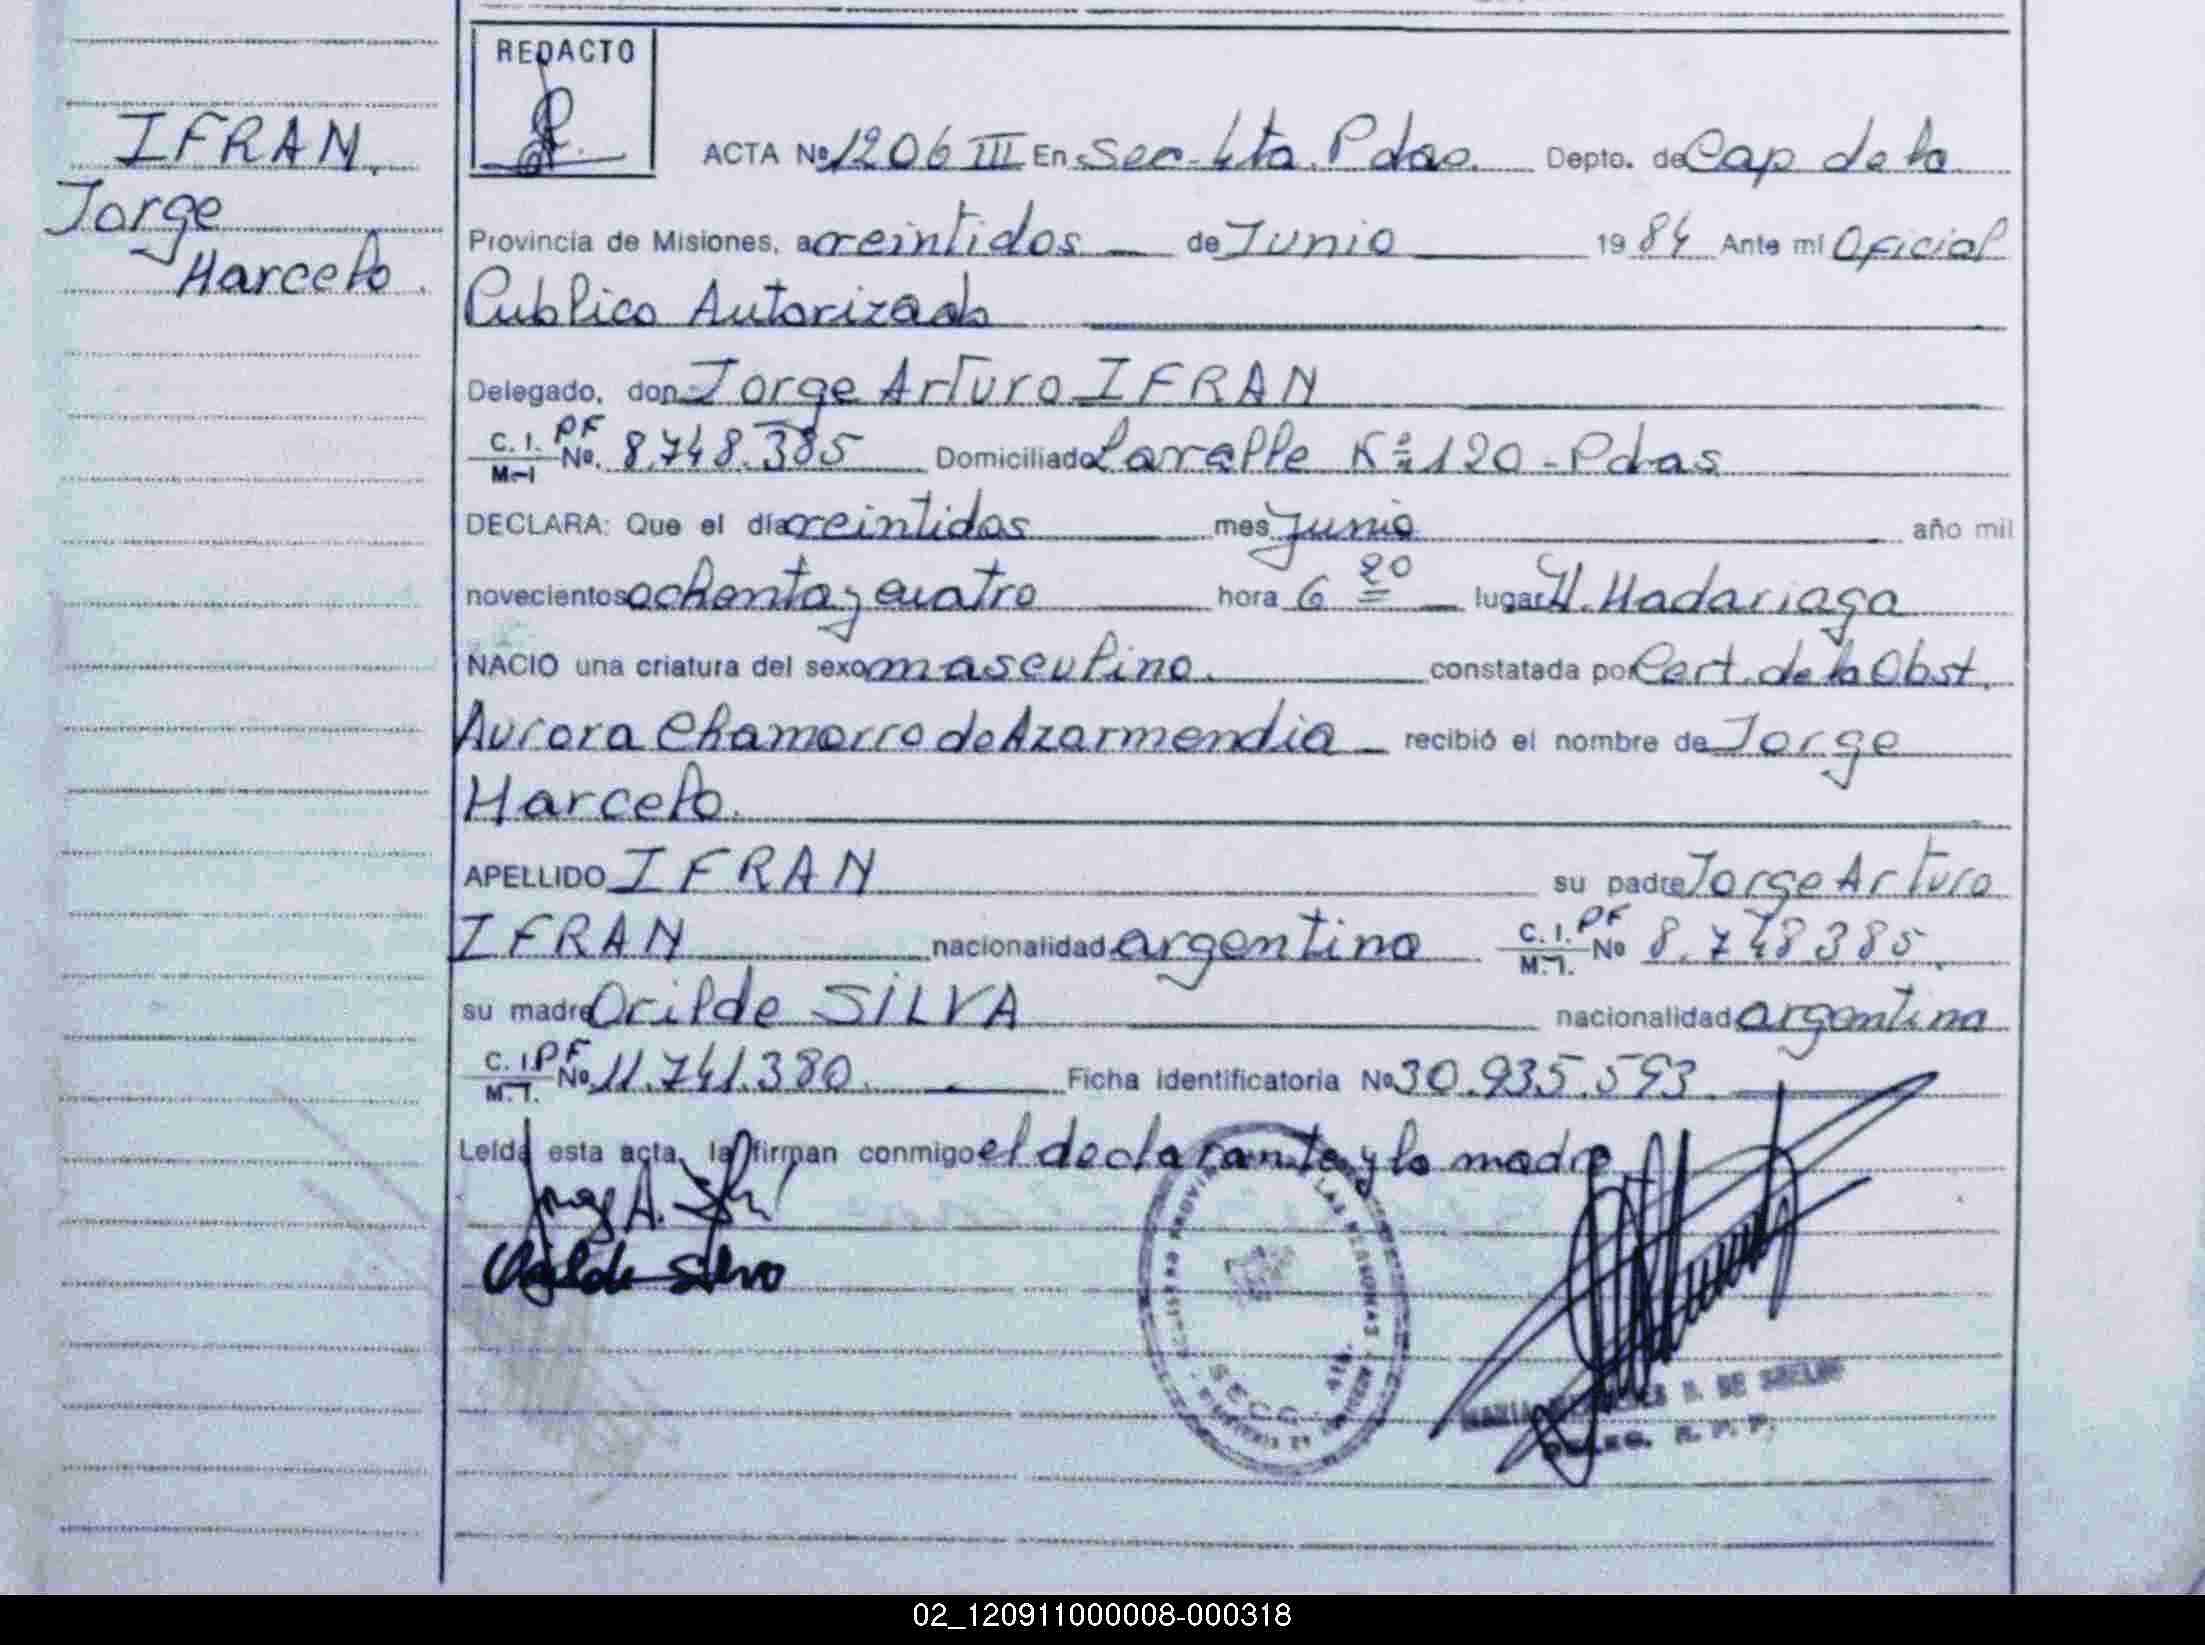 IFRAN,
Jorge
Marcelo.
REDACTO
ACTA Nº 1206 III En Sec. 4ta. Pdas. Depto. de Cap de la
Provincia de Misiones, a veintidos de Junio 1984 Ante mi Oficial
Publico Autorizado
Delegado, don Jorge Arturo IFRAN
C. I. PF
M-I Nº. 8.748.385 Domiciliado Lavalle Nº 120 - Pdas
DECLARA: Que el día veintidos mes Junio año mil
novecientos ochenta y cuatro hora 6 20 lugar H. Madariaga
NACIO una criatura del sexo masculino. constatada por Cert. de la Obst.
Aurora Chamorro de Azarmendia recibió el nombre de Jorge
Marcelo.
APELLIDO IFRAN su padre Jorge Arturo
IFRAN nacionalidad argentino C. I. PF M.I. Nº 8.748385.
su madre Orilde SILVA nacionalidad argentina
C. I. PF M.I. Nº 11.741.380. Ficha identificatoria Nº 30.935.593.
Leída esta acta, la firman conmigo el declarante y la madre
Jorge A.
Orilde Silva
LAS PERSONAS
SECC. 4ta.
02_120911000008-000318